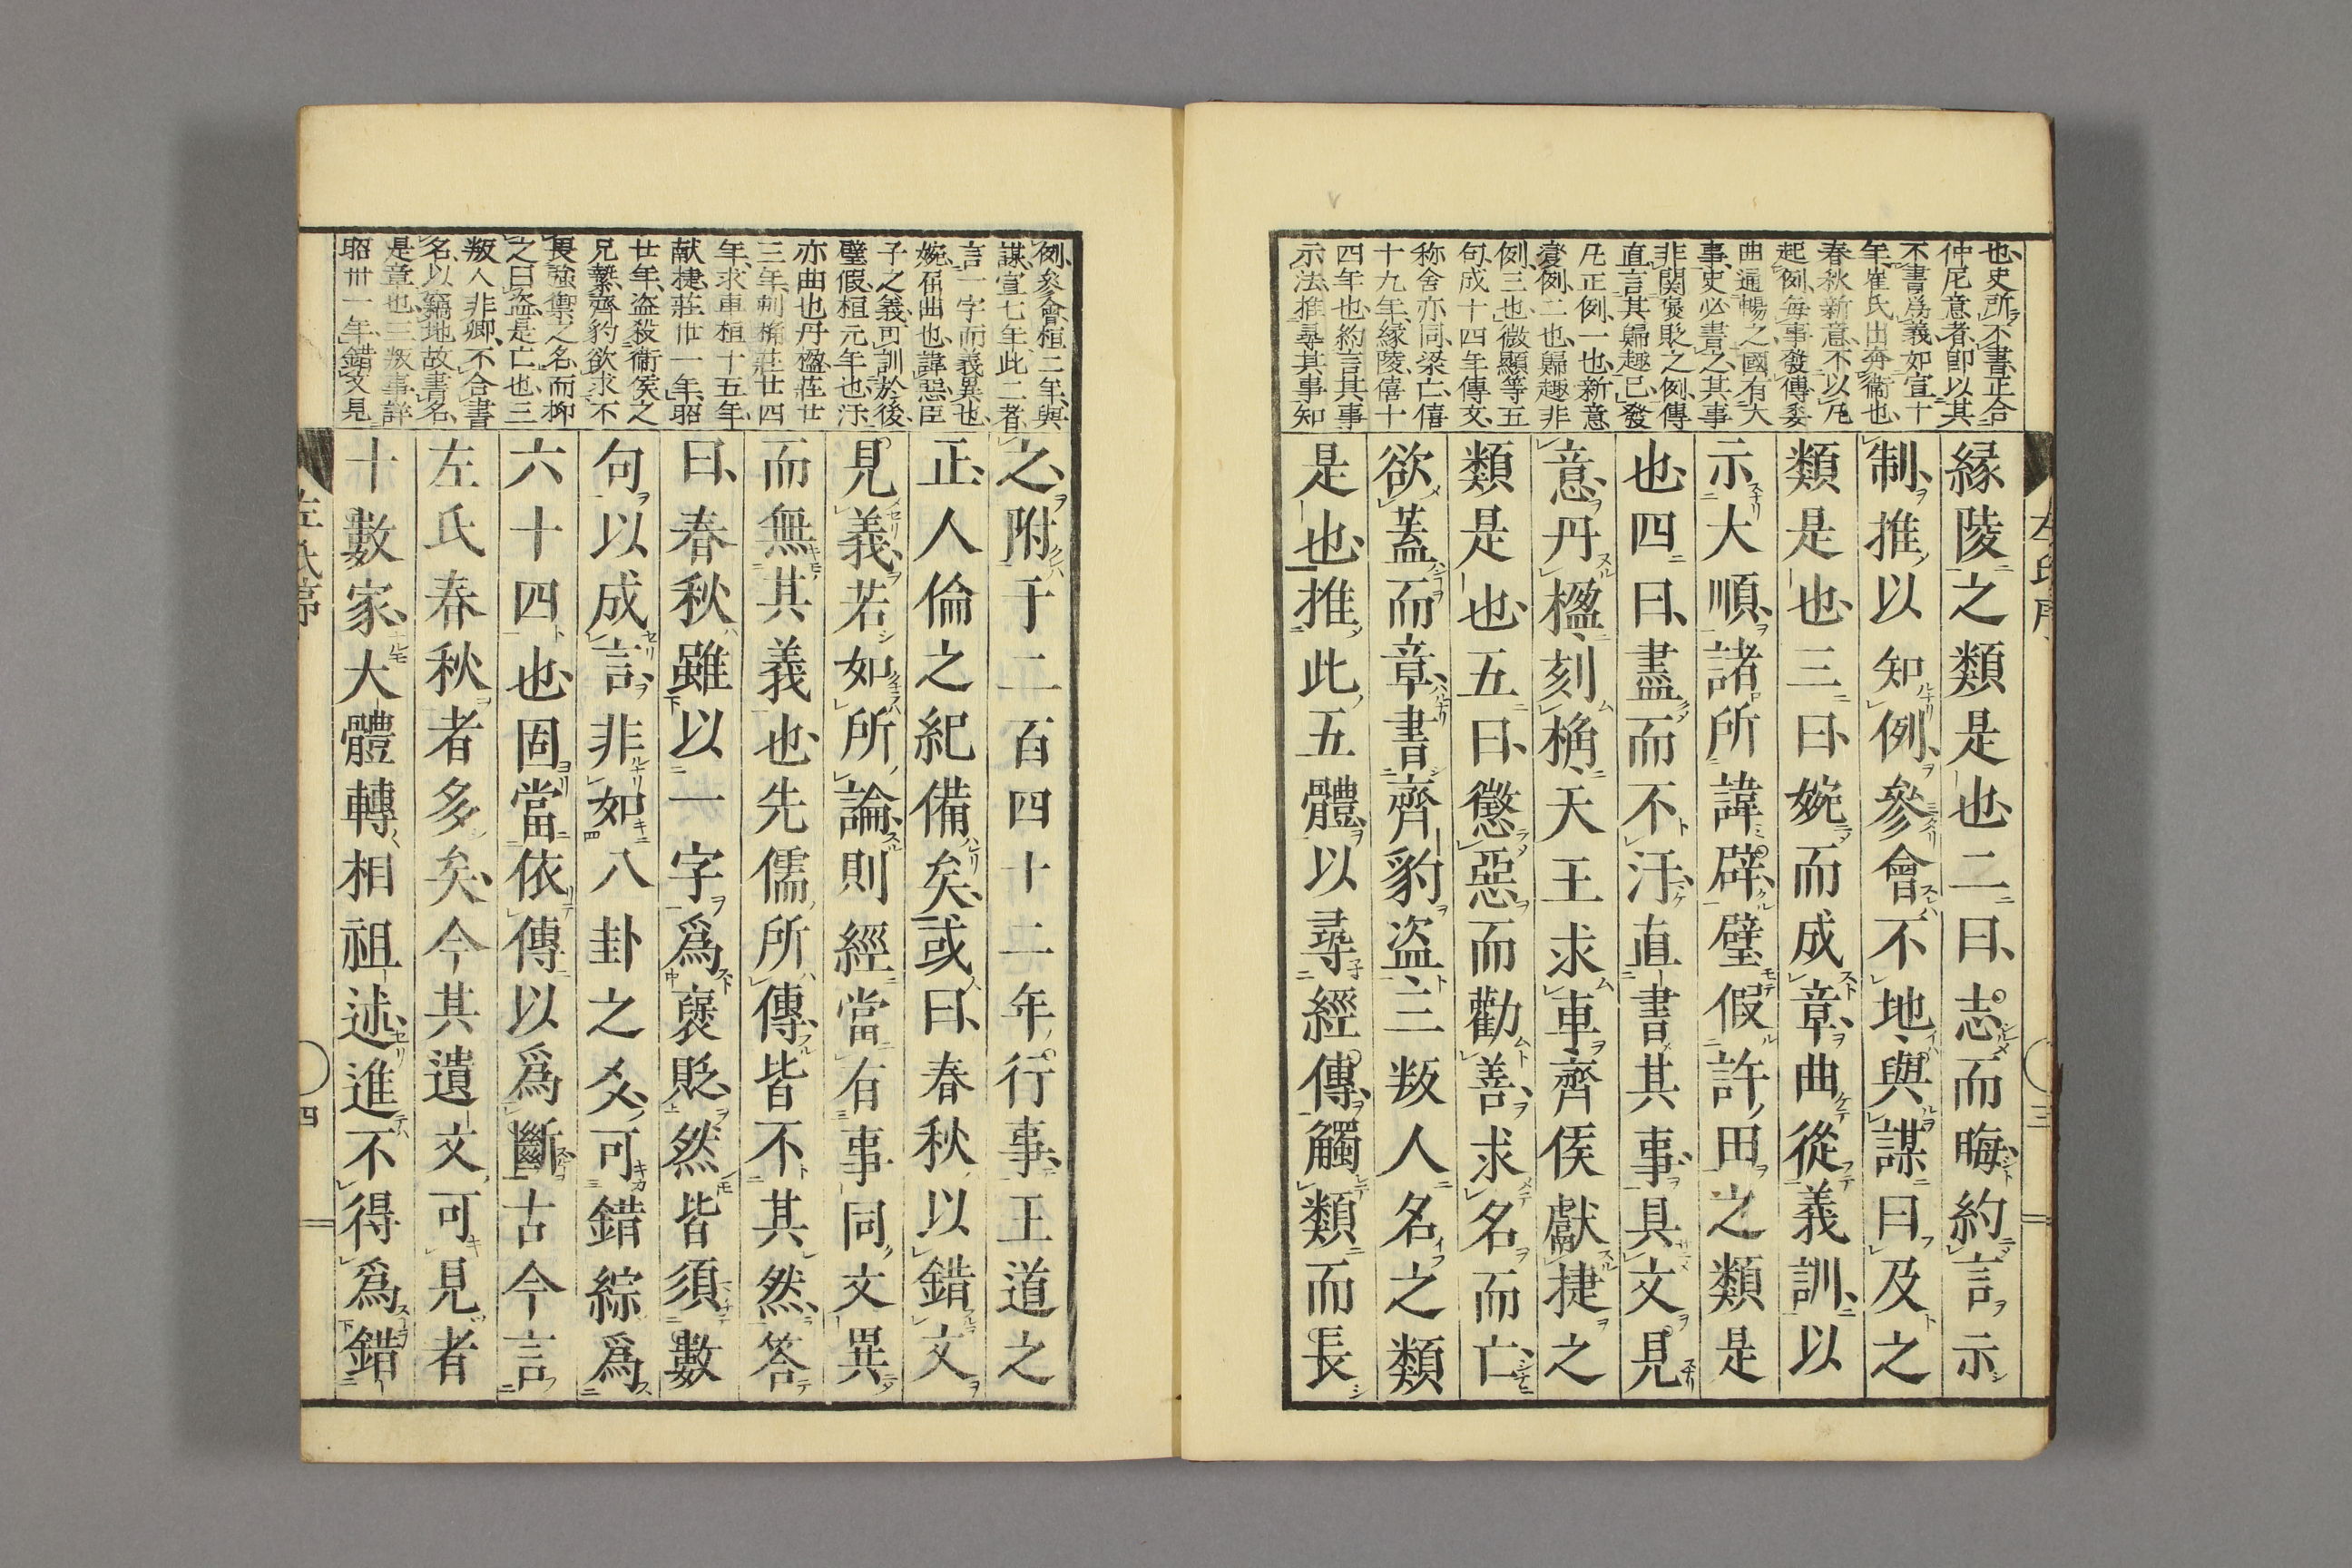 也、史所不書、正合
仲尼意者、即以其
不書爲義如宣十
年、崔氏出奔衞也、
春秋新意、不以凡
起例、毎事發傳委
曲通暢之、國有大
事、史必書之、其事
非関褒貶之例、傳
直言其歸趣已、發
凡正例、一也、新意
変例、二也、歸趣非
例、三也、微顯等五
句、成十四年傳文、
称舍亦同、梁亡、僖
十九年、縁陵、僖十
四年也、約言其事
示法、推尋其事知
縁陵之類是也、二曰、志而晦、約言示
制、推以知例、參會不地、與謀曰及之
類是也、三曰、婉而成章、曲從義訓、以
示大順、諸所諱辟、璧假許田之類是
也、四曰、盡而不汙、直書其事、具文見
意、丹楹、刻桷、天王求車、齊侯獻捷之
類是也、五曰、懲惡而勸善、求名而亡、
欲蓋而章、書齊豹盗、三叛人名之類
是也、推此五體、以尋經傳、觸類而長
三
例、參會桓二年、與
謀、宣七年、此二者、
言一字而義異也、
婉、屈曲也、諱惡、臣
子之義、可訓於後、
璧假、桓元年也、汙
亦曲也、丹楹、莊廿
三年、刻桷、莊廿四
年、求車桓十五年、
献捷、莊卅一年、昭
廿年、盗殺衞侯之
兄縶、齊豹欲求不
畏強禦之名、而抑
之曰盗、是亡也、三
叛人非卿、不合書
名、以竊地故書名、
是章也、三叛事、詳
昭卅一年、錯文見
之、附于二百四十二年、行事、王道之
正、人倫之紀備矣、或曰、春秋以錯文
見義、若如所論、則經當有事同文異
而無其義也、先儒所傳、皆不其然、答
曰、春秋雖以一字爲褒貶、然皆須數
句以成言、非如八卦之爻、可錯綜爲
六十四也、固當依傳以爲斷、古今言
左氏春秋者多矣、今其遺文可見者
十數家、大體轉相祖述、進不得爲錯
左氏序
四